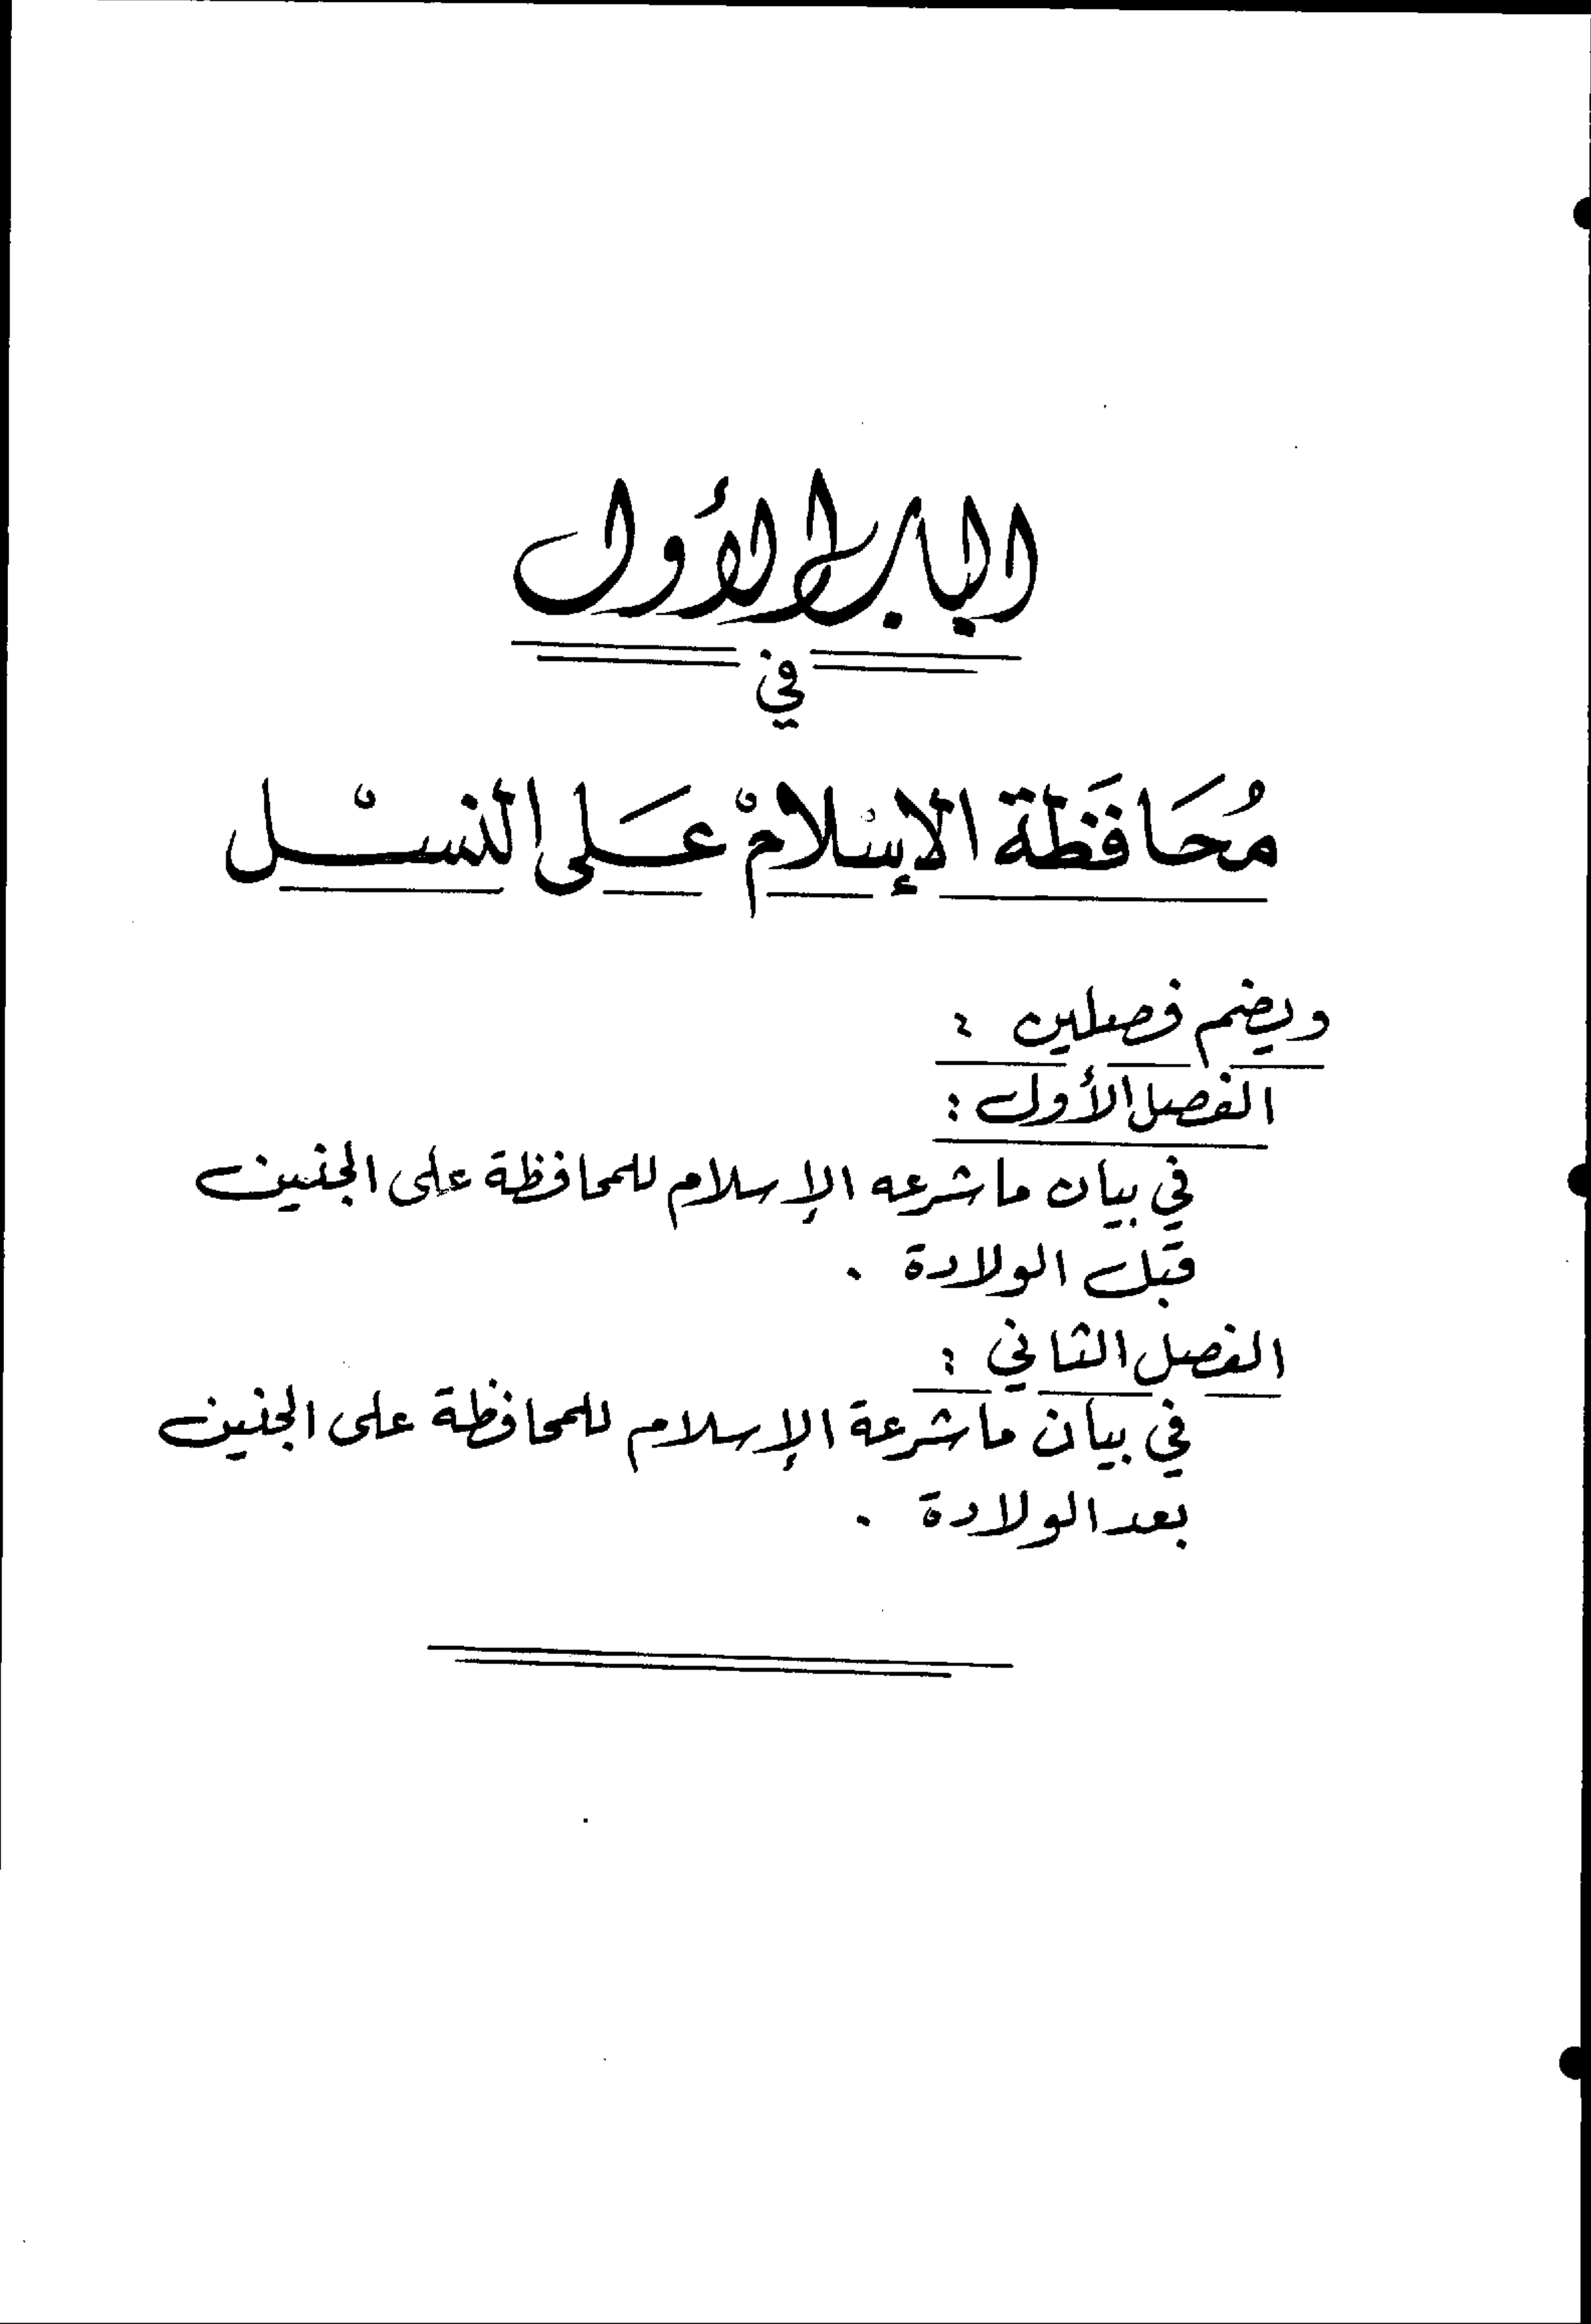 الباب الأول
في
مُحَافَظَة الإسْلامْ عَلى النسْل
ويضم فصلين :
الفصل الأول :
في بيان ما شرعه الإسلام للمحافظة على الجنين
قبل الولادة .
الفصل الثاني :
في بيان ما شرعة الإسلام للمحافظة على الجنين
بعد الولادة .